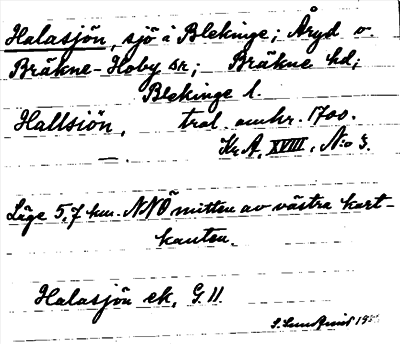 Halasjön, sjö i Blekinge; Åryd o.
Bräkne-Hoby sn; Bräkne hd;
Blekinge l.
Hallsiön, trol. omkr. 1700.
Kr. A, XVIII, N:o 3.
Läge 5,7 km. NNÖ mitten av västra kart-
kanten.
Halasjön ek. G 11.
S. Lundquist